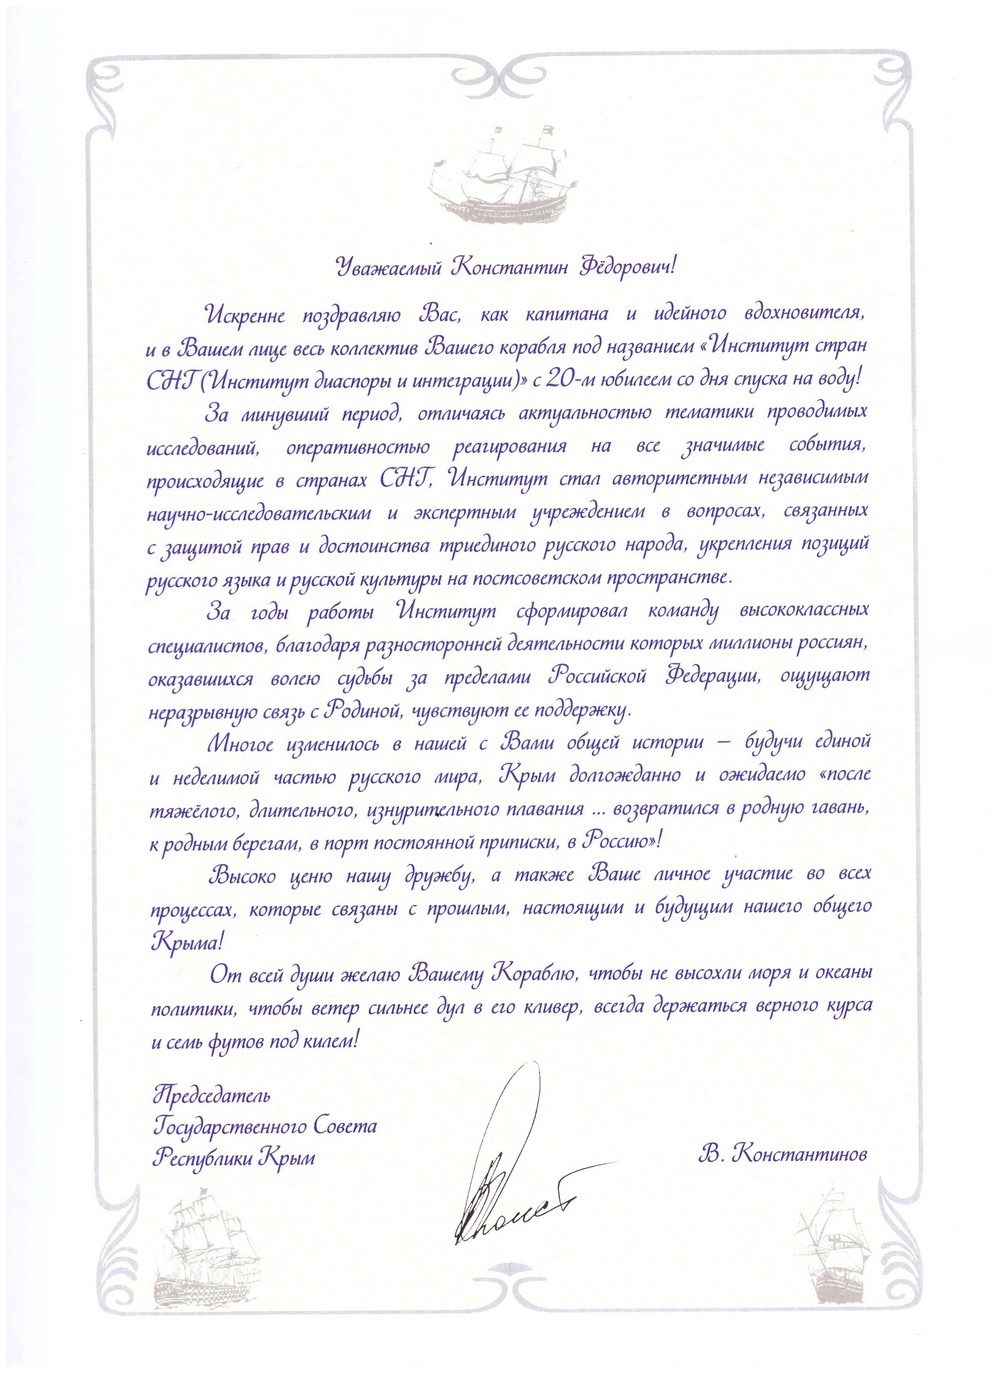 Уважаемый Константин Фёдорович!
Искренне поздравляю Вас, как капитана и идейного вдохновителя,
и в Вашем лице весь коллектив Вашего корабля под названием «Институт стран
СНГ (Институт диаспоры и интеграции)» с 20-м юбилеем со дня спуска на воду!
За минувший период, отличаясь актуальностью тематики проводимых
исследований, оперативностью реагирования на все значимые события,
происходящие в странах СНГ, Институт стал авторитетным независимым
научно-исследовательским и экспертным учреждением в вопросах, связанных
с защитой прав и достоинства триединого русского народа, укрепления позиций
русского языка и русской культуры на постсоветском пространстве.
За годы работы Институт сформировал команду высококлассных
специалистов, благодаря разносторонней деятельности которых миллионы россиян,
оказавшихся волею судьбы за пределами Российской Федерации, ощущают
неразрывную связь с Родиной, чувствуют ее поддержку.
Многое изменилось в нашей с Вами общей истории – будучи единой
и неделимой частью русского мира, Крым долгожданно и ожидаемо «после
тяжёлого, длительного, изнурительного плавания ... возвратился в родную гавань,
к родным берегам, в порт постоянной приписки, в Россию»!
Высоко ценю нашу дружбу, а также Ваше личное участие во всех
процессах, которые связаны с прошлым, настоящим и будущим нашего общего
Крыма!
От всей души желаю Вашему Кораблю, чтобы не высохли моря и океаны
политики, чтобы ветер сильнее дул в его кливер, всегда держаться верного курса
и семь футов под килем!
Председатель
Государственного Совета
Республики Крым
В. Константинов